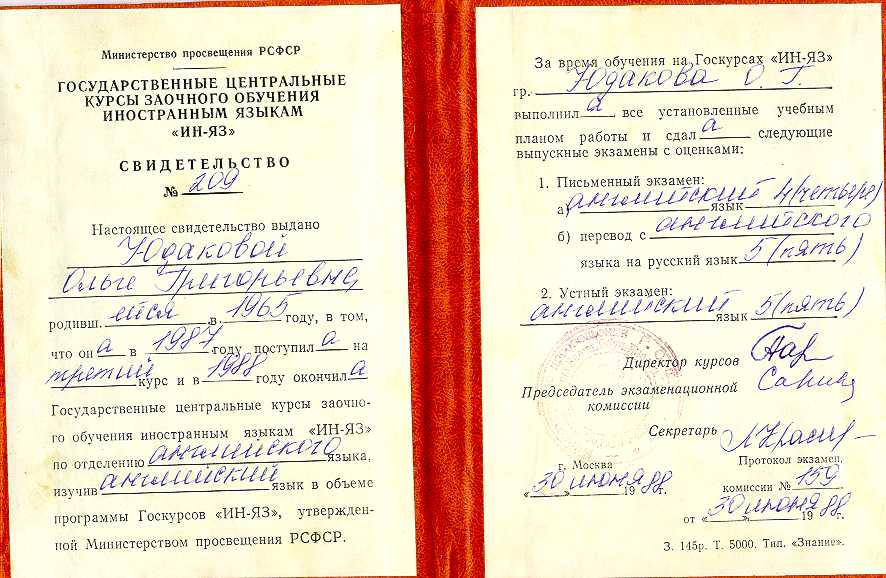 Министерство просвещения РСФСР
ГОСУДАРСТВЕННЫЕ ЦЕНТРАЛЬНЫЕ
КУРСЫ ЗАОЧНОГО ОБУЧЕНИЯ
ИНОСТРАННЫМ ЯЗЫКАМ
«ИН-ЯЗ»
СВИДЕТЕЛЬСТВО
№ 209
Настоящее свидетельство выдано
Юдаковой
Ольге Григорьевне,
родивш. ейся в 1965 году, в том,
что он а в 1987 году поступил а на
третий курс и в 1988 году окончил а
Государственные центральные курсы заочно-
го обучения иностранным языкам «ИН-ЯЗ»
по отделению английского языка,
изучив английский язык в объеме
программы Госкурсов «ИН-ЯЗ», утвержден-
ной Министерством просвещения РСФСР.
За время обучения на Госкурсах «ИН-ЯЗ»
гр. Юдакова О. Г.
выполнил а все установленные учебным
планом работы и сдал а следующие
выпускные экзамены с оценками:
1. Письменный экзамен:
а) английский язык 4 (четыре)
б) перевод с английского
языка на русский язык 5 (пять)
2. Устный экзамен:
английский язык 5 (пять)
Директор курсов
Председатель экзаменационной
комиссии
Секретарь
г. Москва
«30» июня 1988 г.
Протокол экзамен.
комиссии № 159
от «30» июня 1988 г.
З. 145р. Т. 5000. Тип. «Знание».